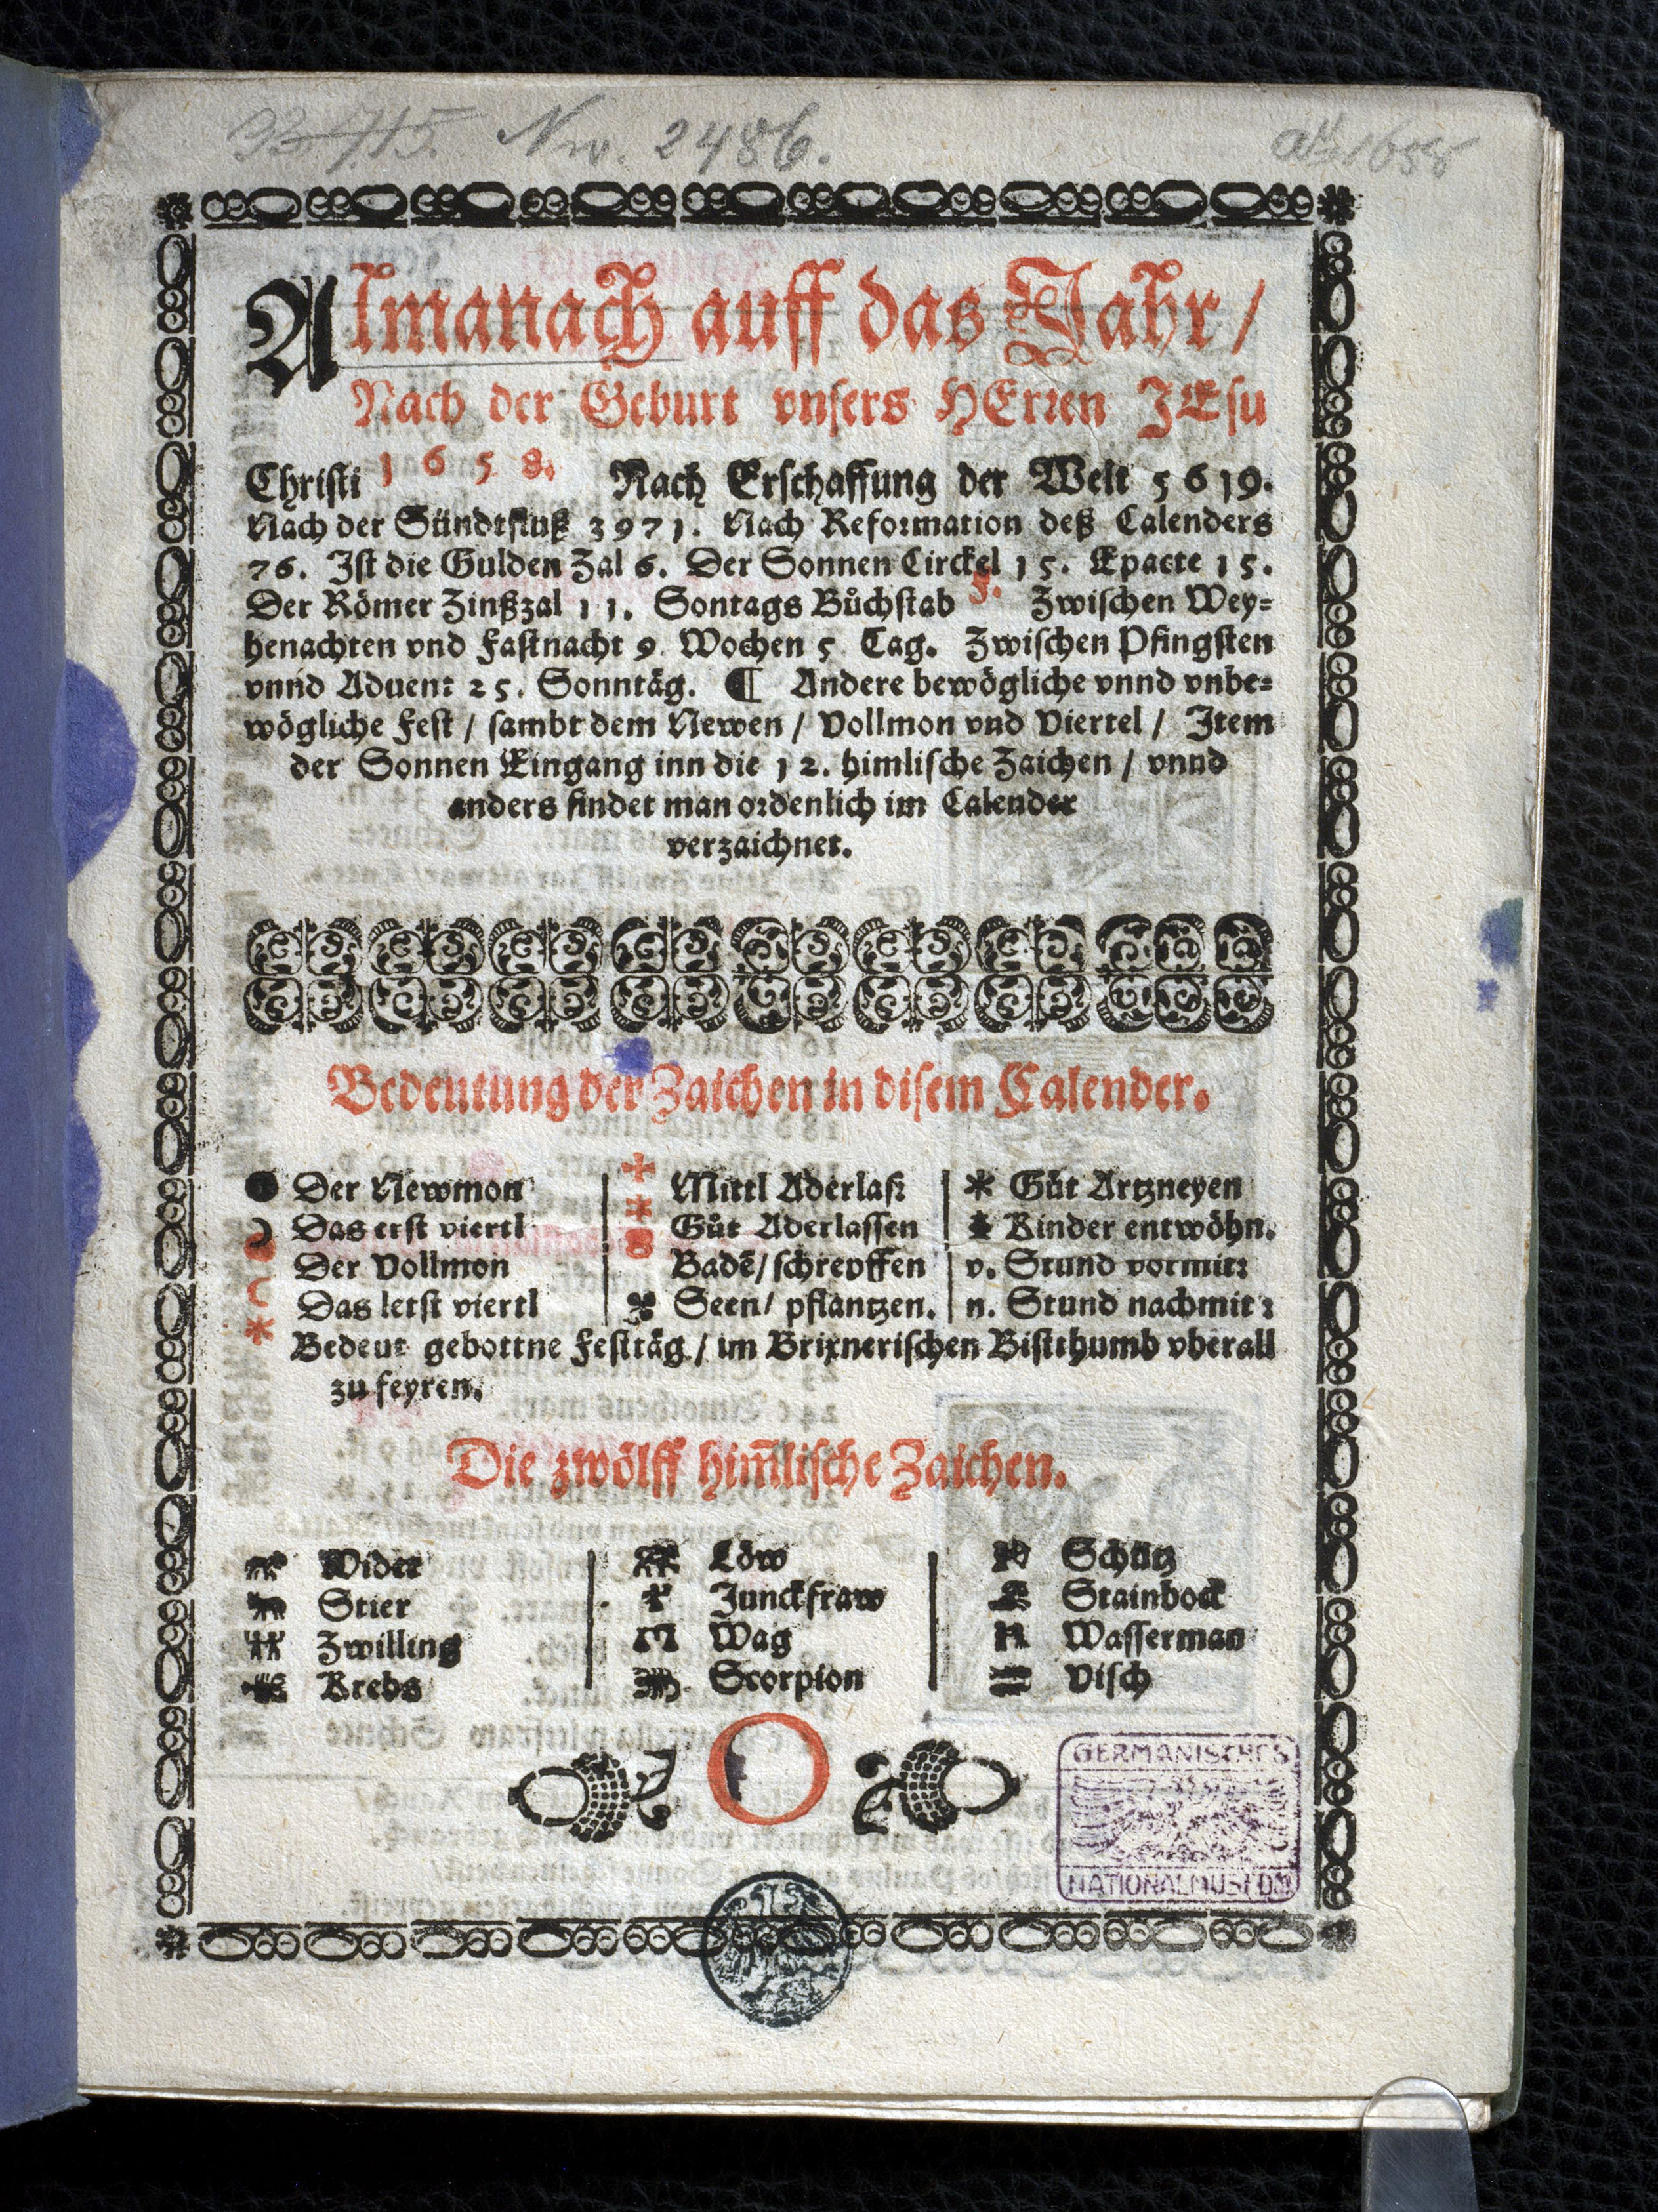 Nw. 2486.
1658
Almanach auff das Jahr /
Nach der Geburt vnsers HErren JEsu
Christi 1658. Nach Erschaffung der Welt 5619.
Nach der Sündtfluß 3971. Nach Reformation deß Calenders
76. Ist die Gulden Zal 6. Der Sonnen Circkel 15. Epacte 15.
Der Römer Zinßzal 11. Sontags Bůchstab F. Zwischen Wey=
henachten vnd Fastnacht 9 Wochen 5 Tag. Zwischen Pfingsten
vnnd Aduent 25. Sonntäg. ¶ Andere bewögliche vnnd vnbe=
wögliche Fest / sambt dem Newen / Vollmon vnd Viertel / Item
der Sonnen Eingang inn die 12. himlische Zaichen / vnnd
anders findet man ordenlich im Calender
verzaichnet.
Bedeutung der Zaichen in disem Calender.
Der Newmon
Das erst viertl
Der Vollmon
Das letst viertl
Mittl Aderlaß
Gůt Aderlassen
Badē / schrepffen
Seen / pflantzen.
Gůt Artzneyen
Kinder entwöhn.
v. Stund vormit:
n. Stund nachmit:
Bedeut gebottne Festtäg / im Brixnerischen Bistthumb vberall
zu feyren.
Die zwölff him̄lische Zaichen.
Wider
Stier
Zwilling
Krebs
Löw
Junckfraw
Wag
Scorpion
Schütz
Stainbock
Wasserman
Visch
GERMANISCHES
NATIONALMUSEUM